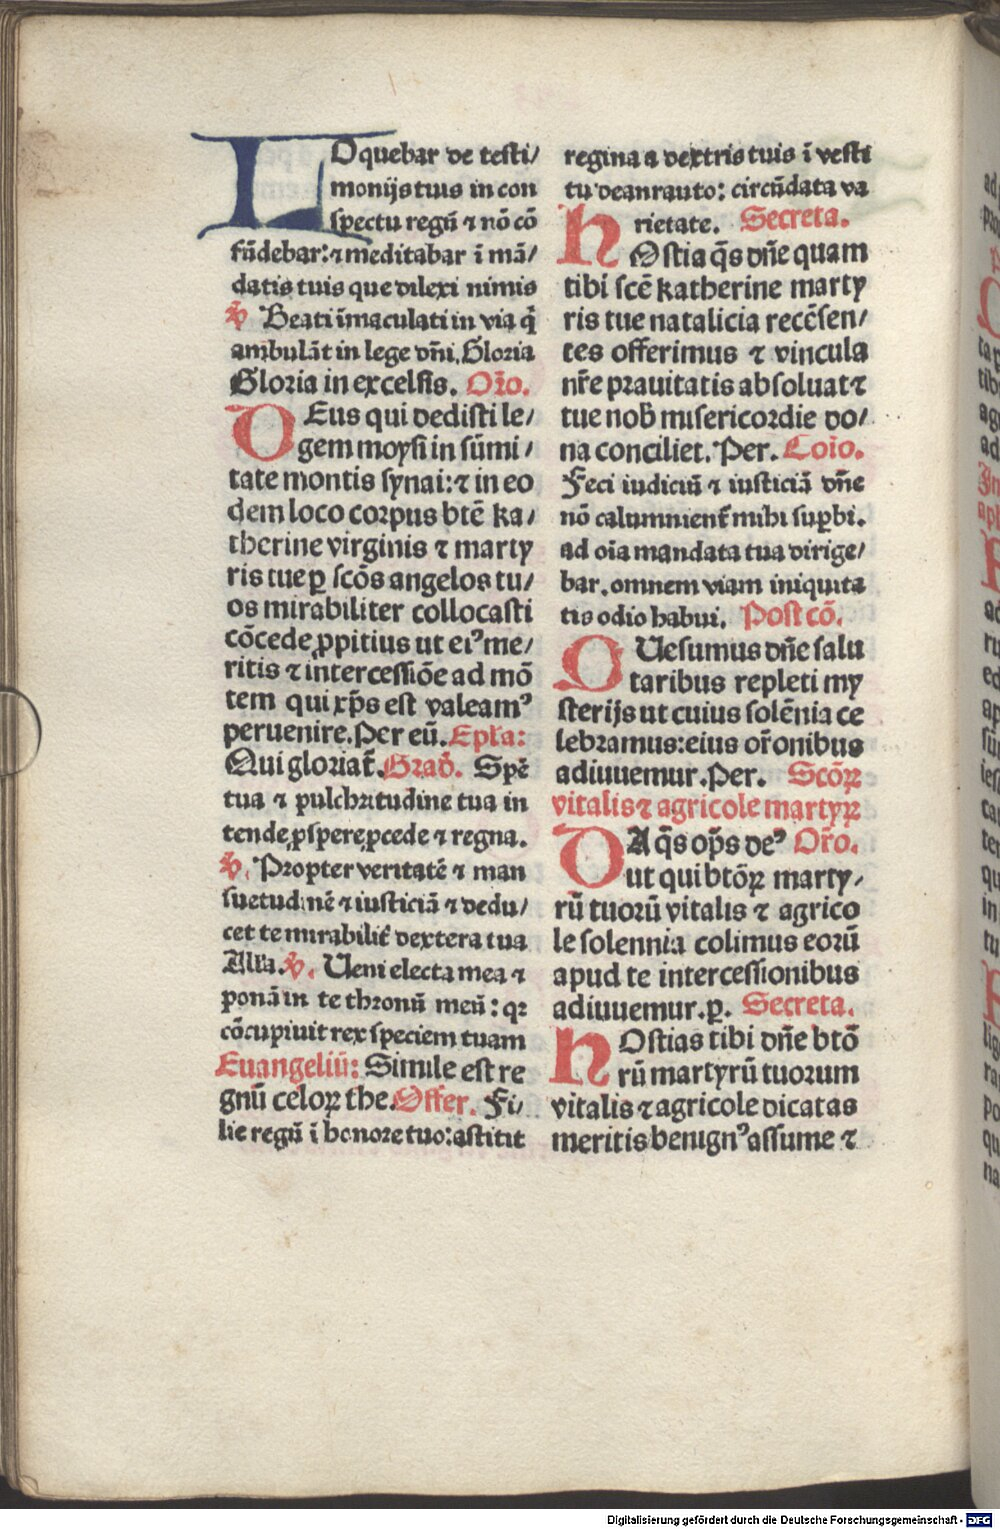 LOquebar de testi/
monijs tuis in con
spectu regū ⁊ nō cō
fūdebar: ⁊ meditabar ī mā/
datis tuis que dilexi nimis
℣ Beati īmaculati in via q̄
ambulāt in lege dn̄i. Gloria
Gloria in excelsis. Orō.
DEus qui dedisti le/
gem moysi in sūmi/
tate montis synai: ⁊ in eo
dem loco corpus btē ka/
therine virginis ⁊ marty
ris tue ꝑ scōs angelos tu/
os mirabiliter collocasti
cōcede ꝓpitius ut eiꝰ me/
ritis ⁊ intercessiōe ad mō
tem qui xp̄s est valeamꝰ
peruenire. Per eū. Epl̄a:
Qui gloriat̄. Grad̄. Spē
tua ⁊ pulchritudine tua in
tende ꝓspere ꝓcede ⁊ regna.
℣. Propter veritatē ⁊ man
suetudinē ⁊ iusticiā ⁊ dedu/
cet te mirabilit̄ dextera tua
Alla. ℣. Ueni electa mea ⁊
ponā in te thronū meū: qꝛ
cōcupiuit rex speciem tuam
Euangeliū: Simile est re
gnū celoꝝ the. Offer. Fi/
lie regū ī honore tuo: astitit
regina a dextris tuis ī vesti
tu deanrauto: circūdata va
rietate. Secreta.
HOstia q̄s dn̄e quam
tibi scē katherine marty
ris tue natalicia recēsen/
tes offerimus ⁊ vincula
nr̄e prauitatis absoluat ⁊
tue nob̄ misericordie do/
na conciliet. Per. Coīo.
Feci iudiciū ⁊ iusticiā dn̄e
nō calumnient̄ mihi suꝑbi.
ad oīa mandata tua dirige/
bar. omnem viam iniquita
tis odio habui. Postcō.
QUesumus dn̄e salu
taribus repleti my
sterijs ut cuius solēnia ce
lebramus: eius or̄onibus
adiuuemur. Per. Scōꝝ
vitalis ⁊ agricole martyꝝ
DA q̄s op̄s deꝰ Or̄o.
ut qui btōꝝ marty/
rū tuorū vitalis ⁊ agrico
le solennia colimus eorū
apud te intercessionibus
adiuuemur. ꝑ. Secreta.
HOstias tibi dn̄e btō
rū martyrū tuorum
vitalis ⁊ agricole dicatas
meritis benignꝰ assume ⁊
Digitalisierung gefördert durch die Deutsche Forschungsgemeinschaft - DFG